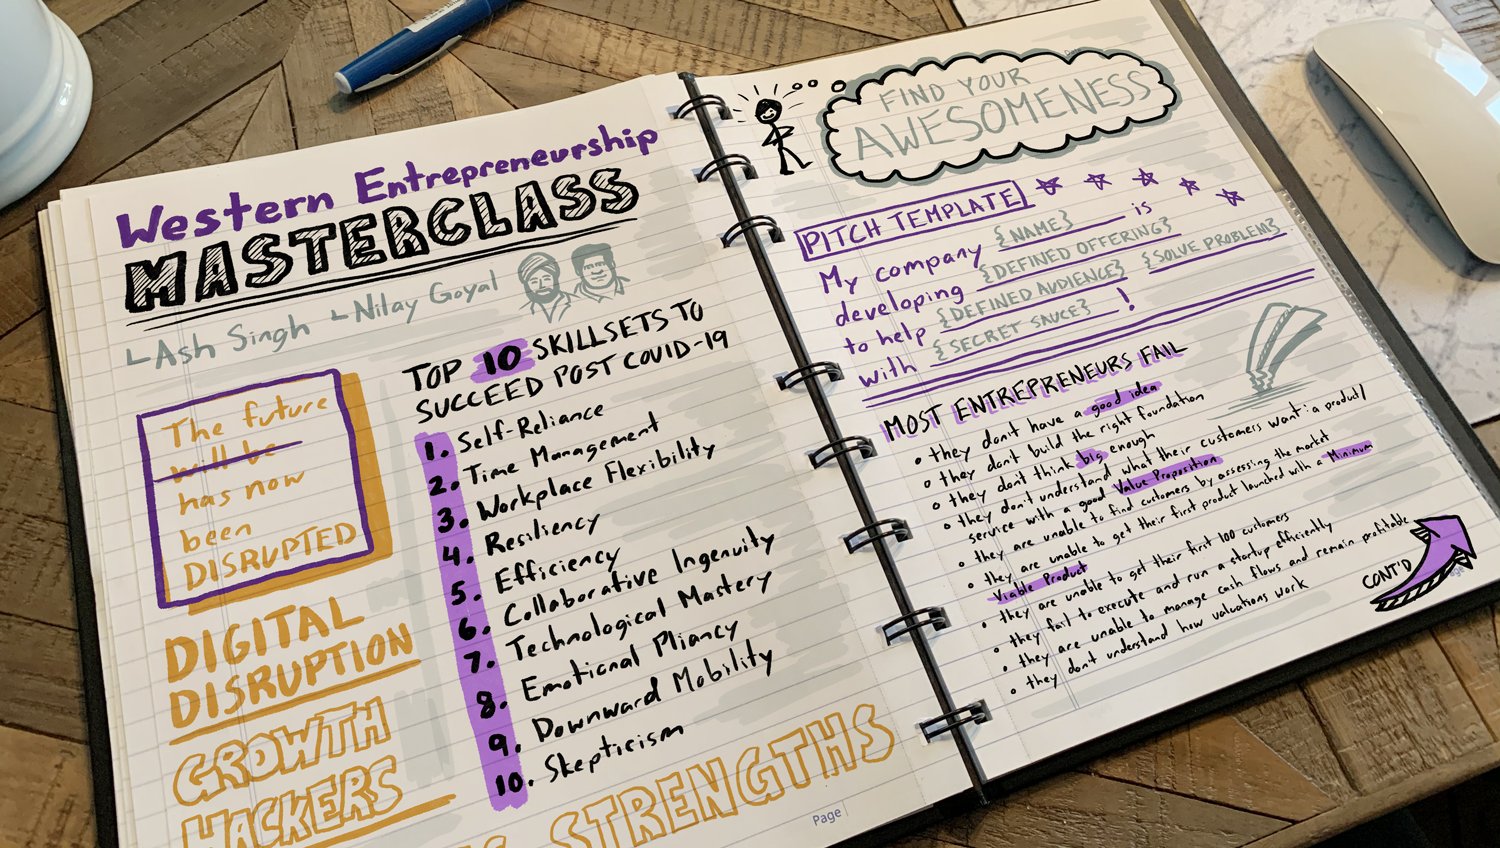 Western Entrepreneurship
MASTERCLASS
Ash Singh
Nilay Goyal
The future
will be
has now
been
DISRUPTED
DIGITAL
DISRUPTION
GROWTH
HACKERS
TOP 10 SKILLSETS TO
SUCCEED POST COVID-19
1. Self-Reliance
2. Time Management
3. Workplace Flexibility
4. Resiliency
5. Efficiency
6. Collaborative Ingenuity
7. Technological Mastery
8. Emotional Pliancy
9. Downward Mobility
10. Skepticism
STRENGTHS
Page
FIND YOUR
AWESOMENESS
PITCH TEMPLATE
My company {NAME} is
developing {DEFINED OFFERING}
to help {DEFINED AUDIENCE} {SOLVE PROBLEM}
with {SECRET SAUCE} !
MOST ENTREPRENEURS FAIL
• they don't have a good idea
• they don't build the right foundation
• they don't think big enough
• they don't understand what their customers want: a product/
service with a good Value Proposition
• they are unable to find customers by assessing the market
• they are unable to get their first product launched with a Minimum
Viable Product
• they are unable to get their first 100 customers
• they fail to execute and run a startup efficiently
• they are unable to manage cash flows and remain profitable
• they don't understand how valuations work
CONT'D